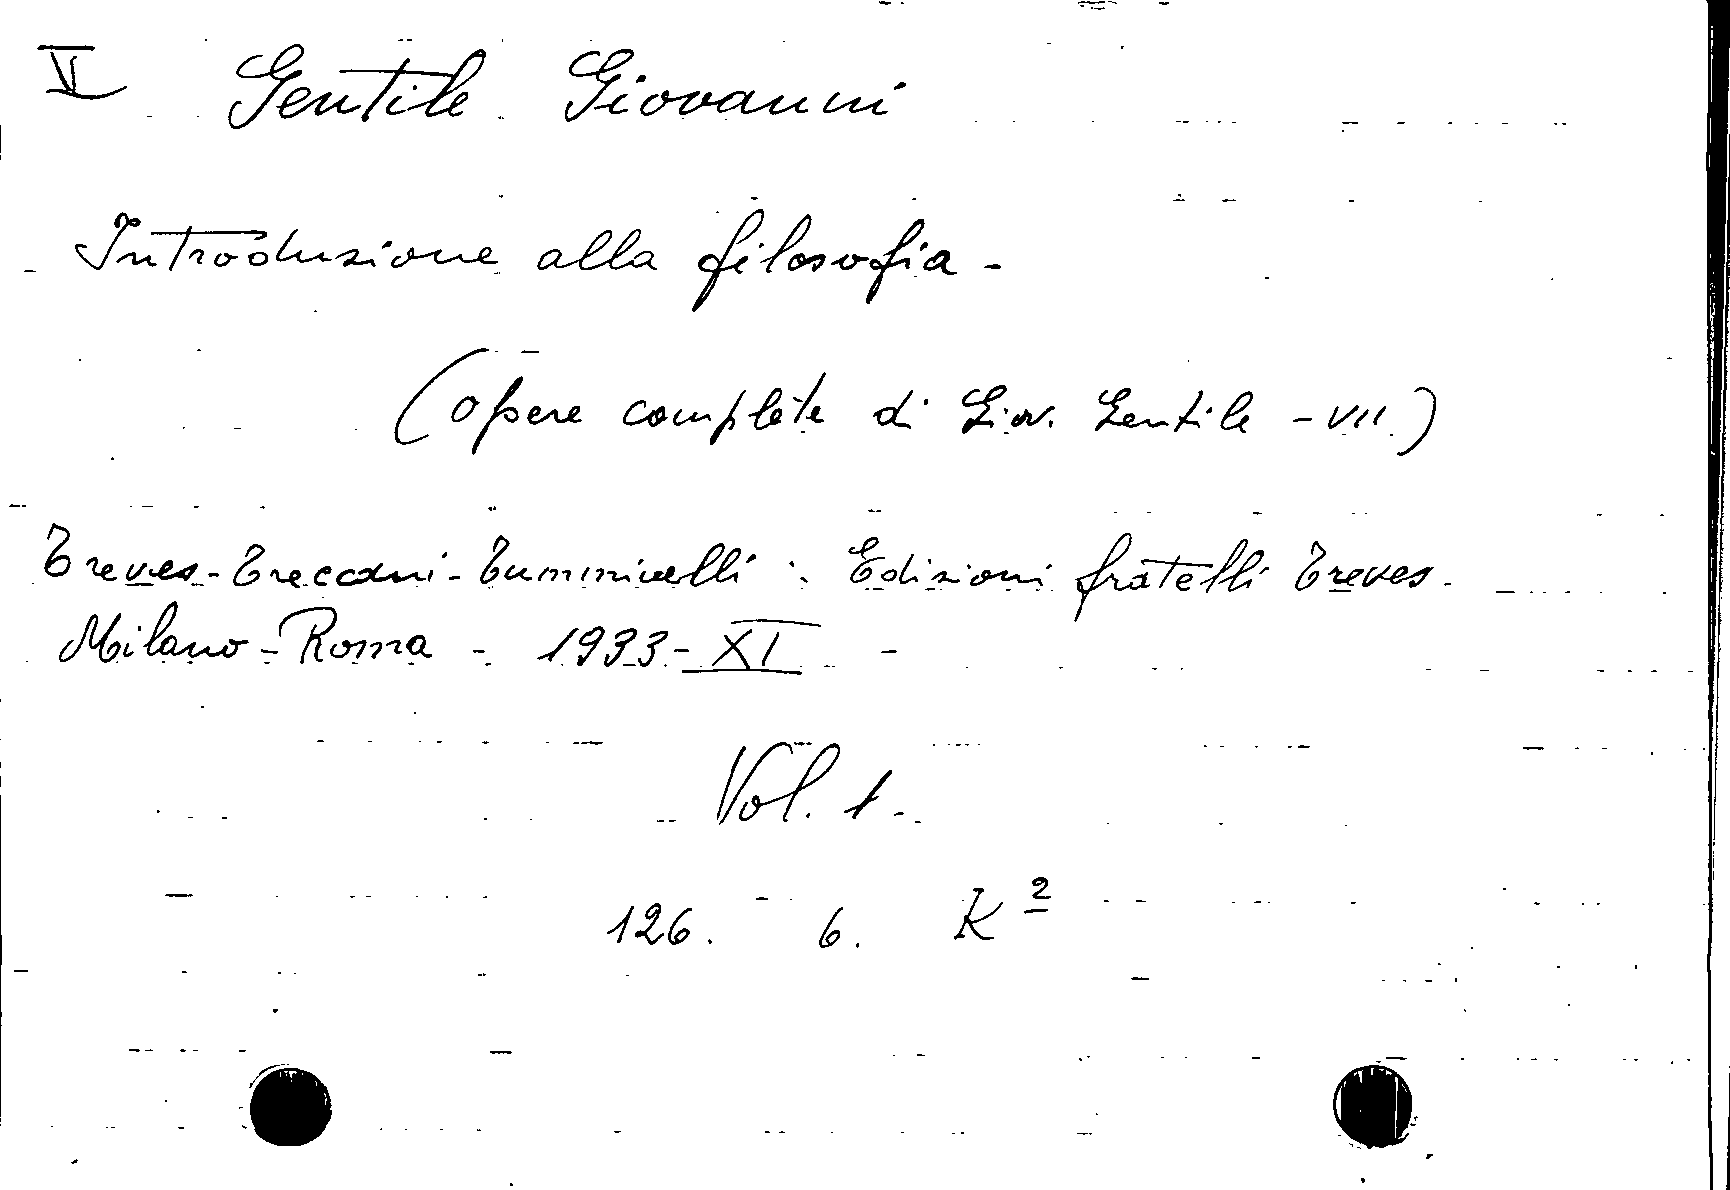 V Gentile Giovanni
Introduzione alla filosofia -
(opere complete di Giov. Gentile - VII)
Treves-Treccani-Tumminelli: Edizioni fratelli Treves.
Milano-Roma - 1933-XI -
Vol. 1.
126. 6. K 2